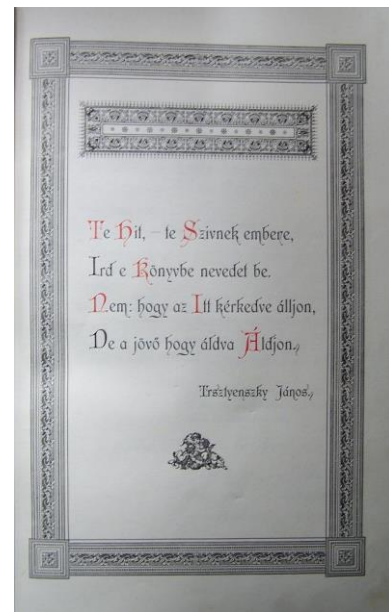 Te Hit, – te Szivnek embere,
Ird e Könyvbe nevedet be.
Nem: hogy az Itt kérkedve álljon,
De a jövő hogy áldva Áldjon.
Trsztyenszky János.